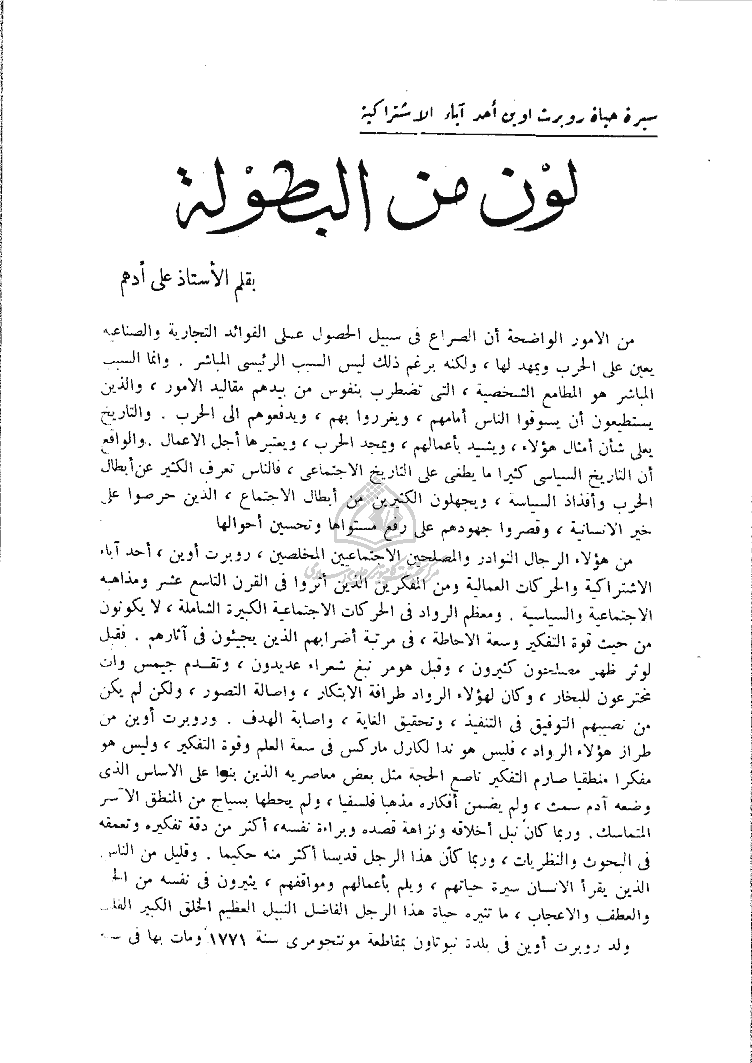 سيرة حياة روبرت اوين أحد آباء الاشتراكية
لون من البطولة
بقلم الأستاذ على أدهم
من الامور الواضحة أن الصراع فى سبيل الحصول عـلى الفوائد التجارية والصناعيه
يعين على الحرب ويمهد لها ، ولكنه برغم ذلك ليس السبب الرئيسى المباشر . وانما السبب
المباشر هو المطامع الشخصية ، التى تضطرب بنفوس من بيدهم مقاليد الامور ، والذين
يستطيعون أن يسوقوا الناس أمامهم ، ويغرروا بهم ، ويدفعوهم الى الحرب . والتاريخ
يعلى شأن أمثال هؤلاء ، ويشيد بأعمالهم ، ويمجد الحرب ، ويعتبرها أجل الاعمال . والواقع
أن التاريخ السياسى كثيرا ما يطغى على التاريخ الاجتماعى ، فالناس تعرف الكثير عن أبطال
الحرب وأفذاذ السياسة ، ويجهلون الكثيرين من أبطال الاجتماع ، الذين حرصوا على
خير الانسانية ، وقصروا جهودهم على رفع مستواها وتحسين أحوالها
من هؤلاء الرجال النوادر والمصلحين الاجتماعيين المخلصين ، روبرت أوين ، أحد آباء
الاشتراكية والحركات العمالية ومن المفكرين الذين أثروا فى القرن التاسع عشر ومذاهبه
الاجتماعية والسياسية . ومعظم الرواد فى الحركات الاجتماعية الكبيرة الشاملة ، لا يكونون
من حيث قوة التفكير وسعة الاحاطة ، فى مرتبة أضرابهم الذين يجيئون فى آثارهم . فقبل
لوثر ظهر مصلحون كثيرون ، وقبل هومر نبغ شعراء عديدون ، وتقـدم جيمس وات
مخترعون للبخار ، وكان لهؤلاء الرواد طرافة الابتكار ، واصالة التصور ، ولكن لم يكن
من نصيبهم التوفيق فى التنفيذ ، وتحقيق الغاية ، واصابة الهدف . وروبرت أوين من
طراز هؤلاء الرواد ، فليس هو ندا لكارل ماركس فى سعة العلم وقوة التفكير ، وليس هو
مفكرا منطقيا صارم التفكير ناصع الحجة مثل بعض معاصريه الذين بنوا على الاساس الذى
وضعه آدم سمث ، ولم يضمن أفكاره مذهبا فلسفيا ، ولم يحطها بسياج من المنطق الآسر
المتماسك . وربما كان نبل أخلاقه ونزاهة قصده وبراءة نفسه، أكثر من دقة تفكيره وتعمقه
فى البحوث والنظريات ، وربما كأن هذا الرجل قديسا أكثر منه حكيما . وقليل من الناس
الذين يقرأ الانسان سيرة حياتهم ، ويلم بأعمالهم ومواقفهم ، يثيرون فى نفسه من
والعطف والاعجاب ، ما تثيره حياة هذا الرجل الفاضل النبيل العظيم الخلق الكبير
ولد روبرت أوين فى بلدة نيوتاون بمقاطعة مونتجومرى سنة ١٧٧١ ومات بها فى